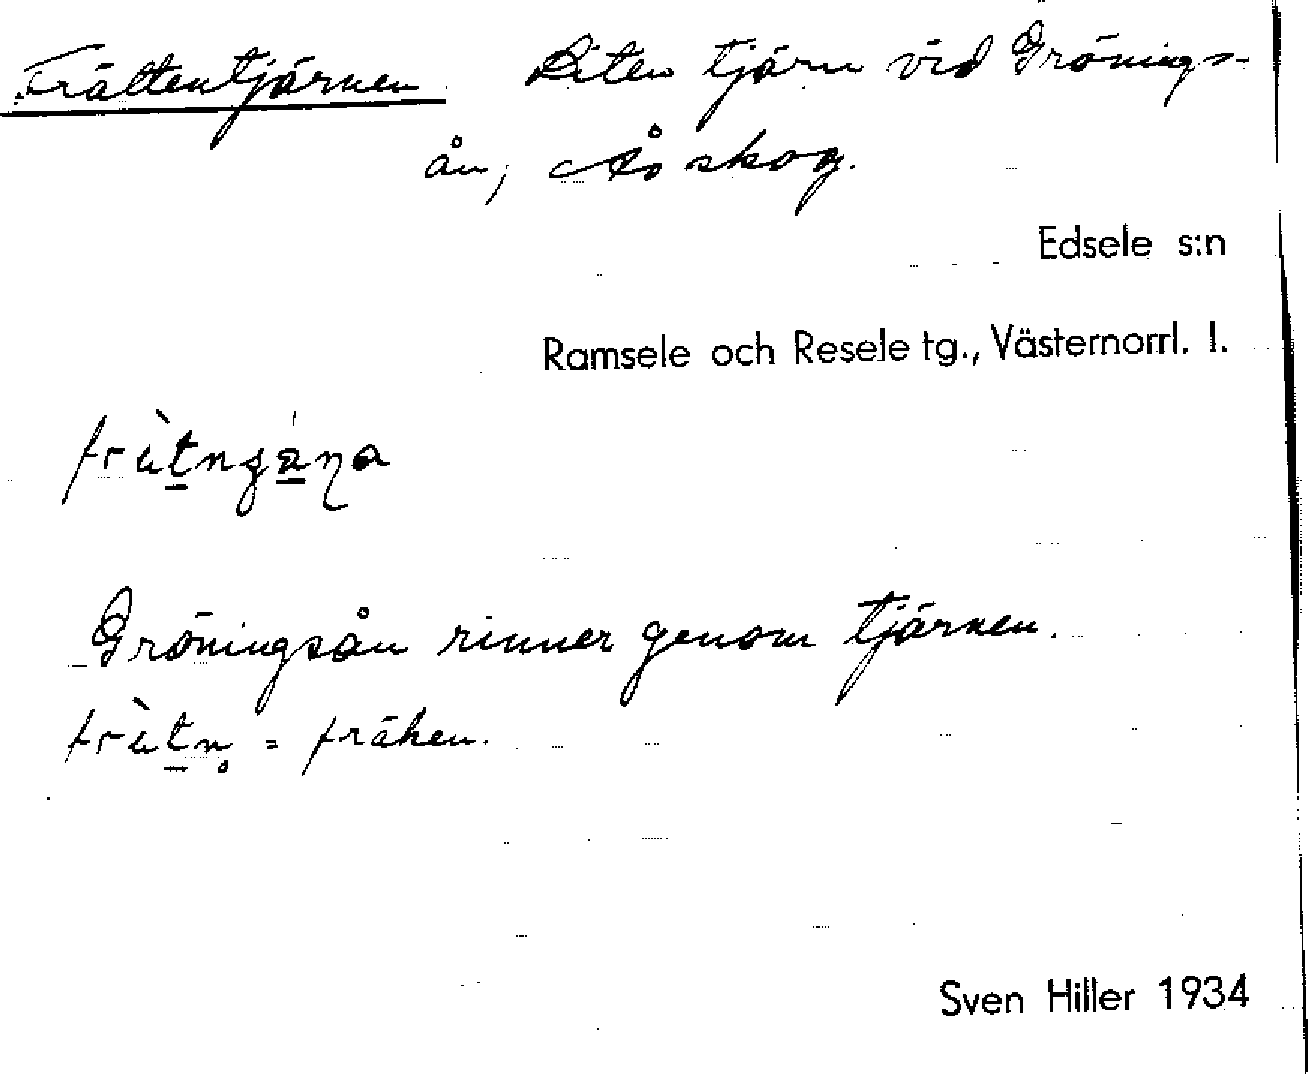 Frättentjärnen Liten tjärn vid Grönings-
ån, Ås skog.
Edsele s:n
Ramsele och Resele tg., Västernorrl. l.
Gröningsån rinner genom tjärnen.
= fräken.
Sven Hiller 1934